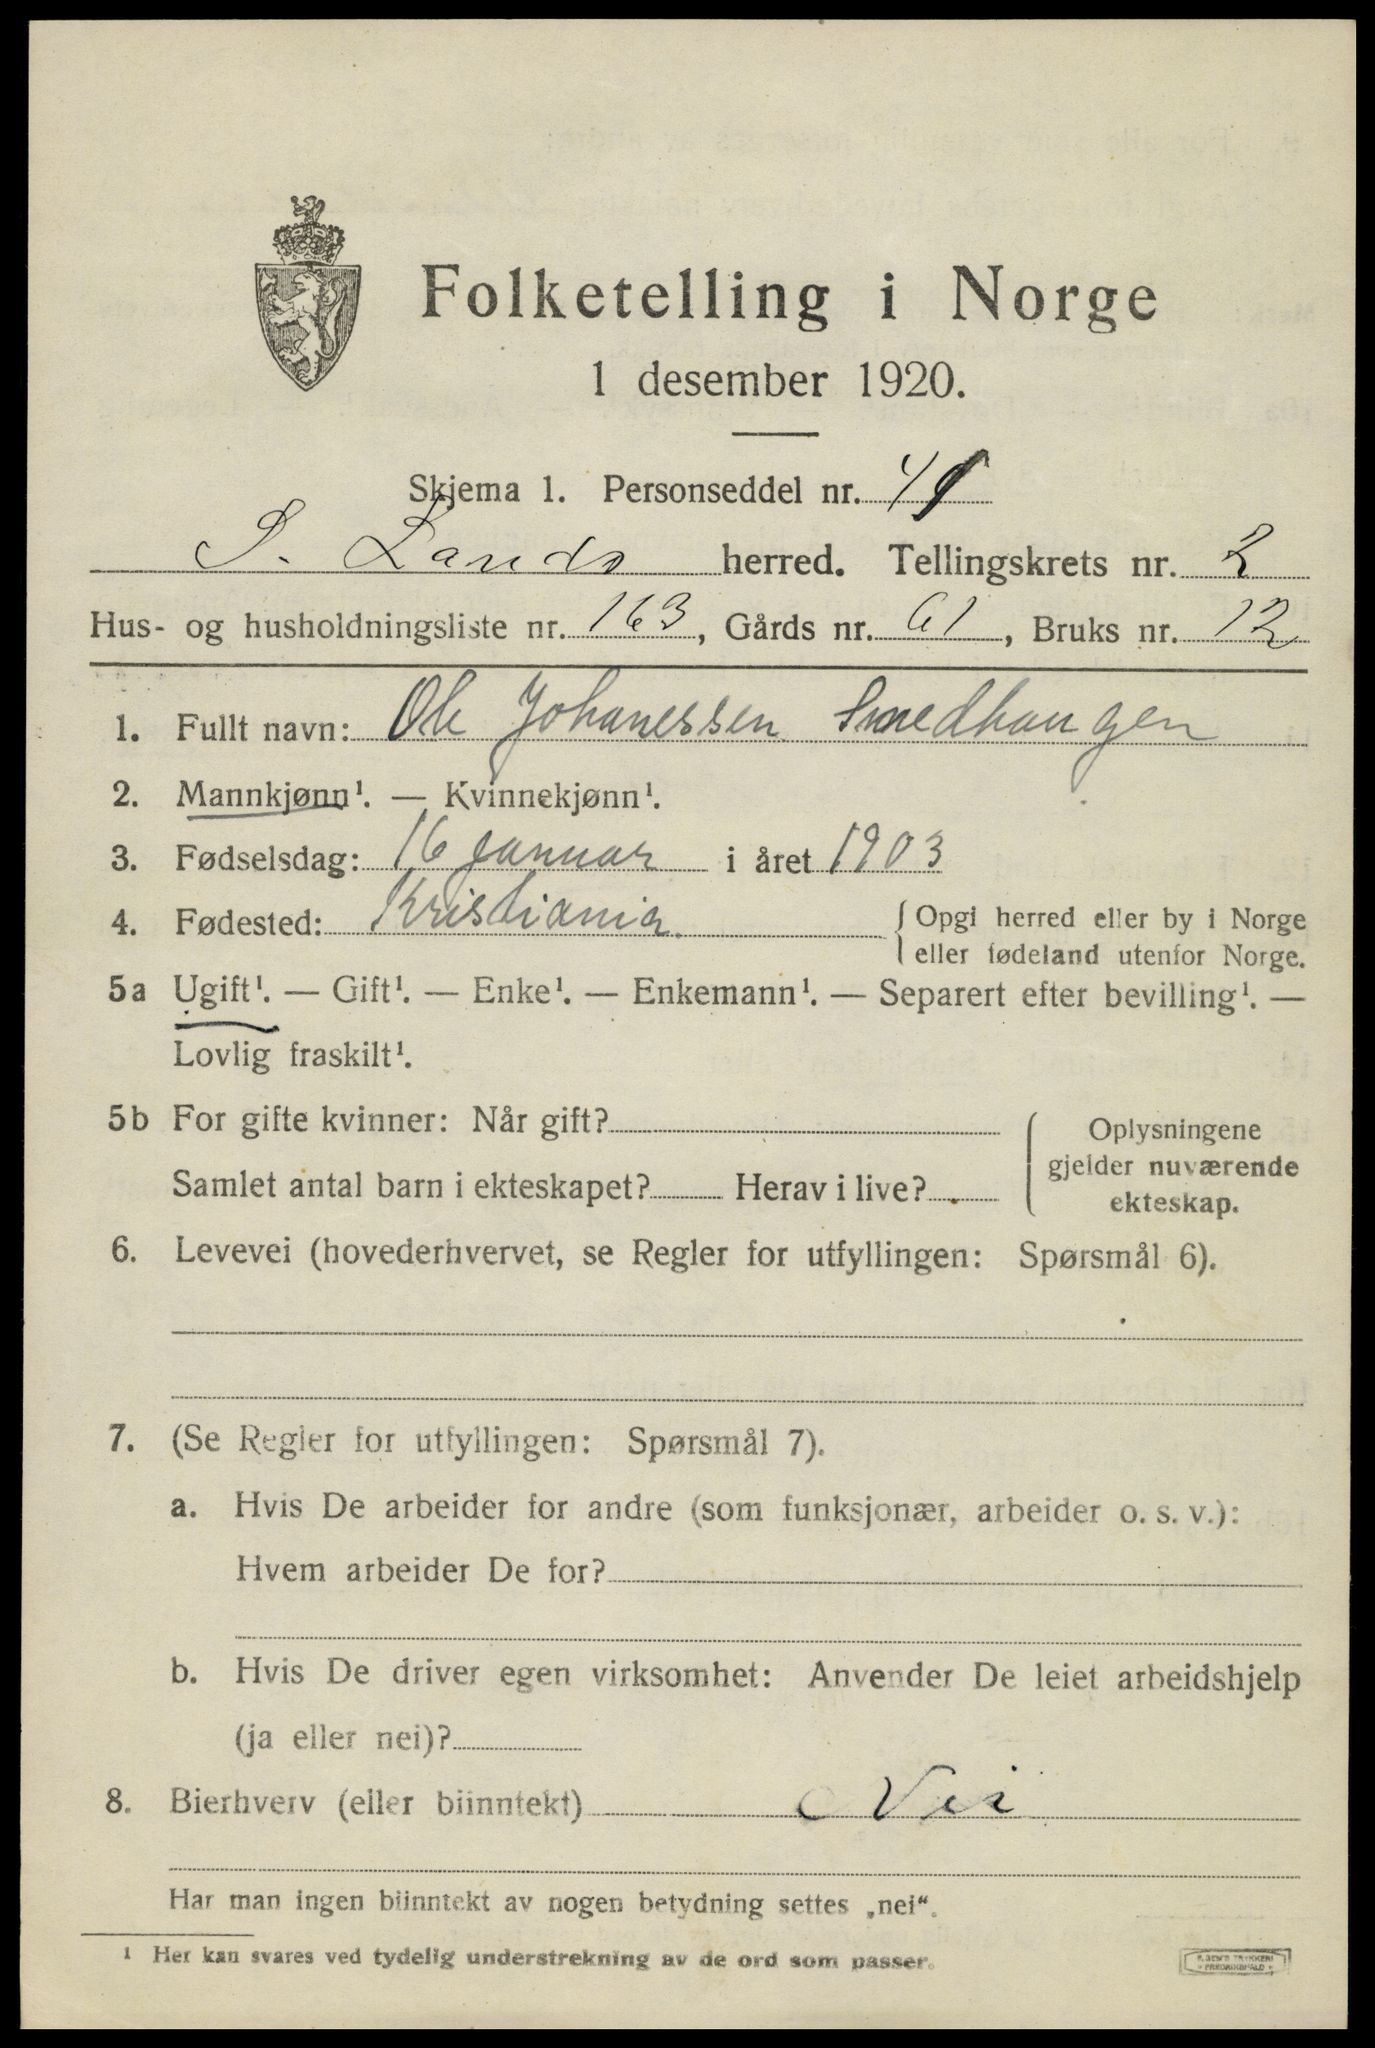 Folketelling i Norge
1 desember 1920.
Skjema 1. Personseddel nr.
S. Lands herred. Tellingskrets nr. 2
Hus- og husholdningsliste nr. 163, Gårds nr. 61, Bruks nr. 12
1. Fullt navn: Ole Johanessen Smedhaugen
2. Mannkjønn¹. — Kvinnekjønn¹.
3. Fødselsdag: 16 Januar i året 1903
4. Fødested: Kristiania. { Opgi herred eller by i Norge
eller fødeland utenfor Norge.
5a Ugift¹. — Gift¹. — Enke¹. — Enkemann¹. — Separert efter bevilling¹. —
Lovlig fraskilt¹.
5b For gifte kvinner: Når gift?
Samlet antal barn i ekteskapet? Herav i live?
Oplysningene
gjelder nuværende
ekteskap.
6. Levevei (hovederhvervet, se Regler for utfyllingen: Spørsmål 6).
7. (Se Regler for utfyllingen: Spørsmål 7).
a. Hvis De arbeider for andre (som funksjonær, arbeider o. s. v.):
Hvem arbeider De for?
b. Hvis De driver egen virksomhet: Anvender De leiet arbeidshjelp
(ja eller nei)?
8. Bierhverv (eller biinntekt) Nei
Har man ingen biinntekt av nogen betydning settes „nei“.
¹ Her kan svares ved tydelig understrekning av de ord som passer.